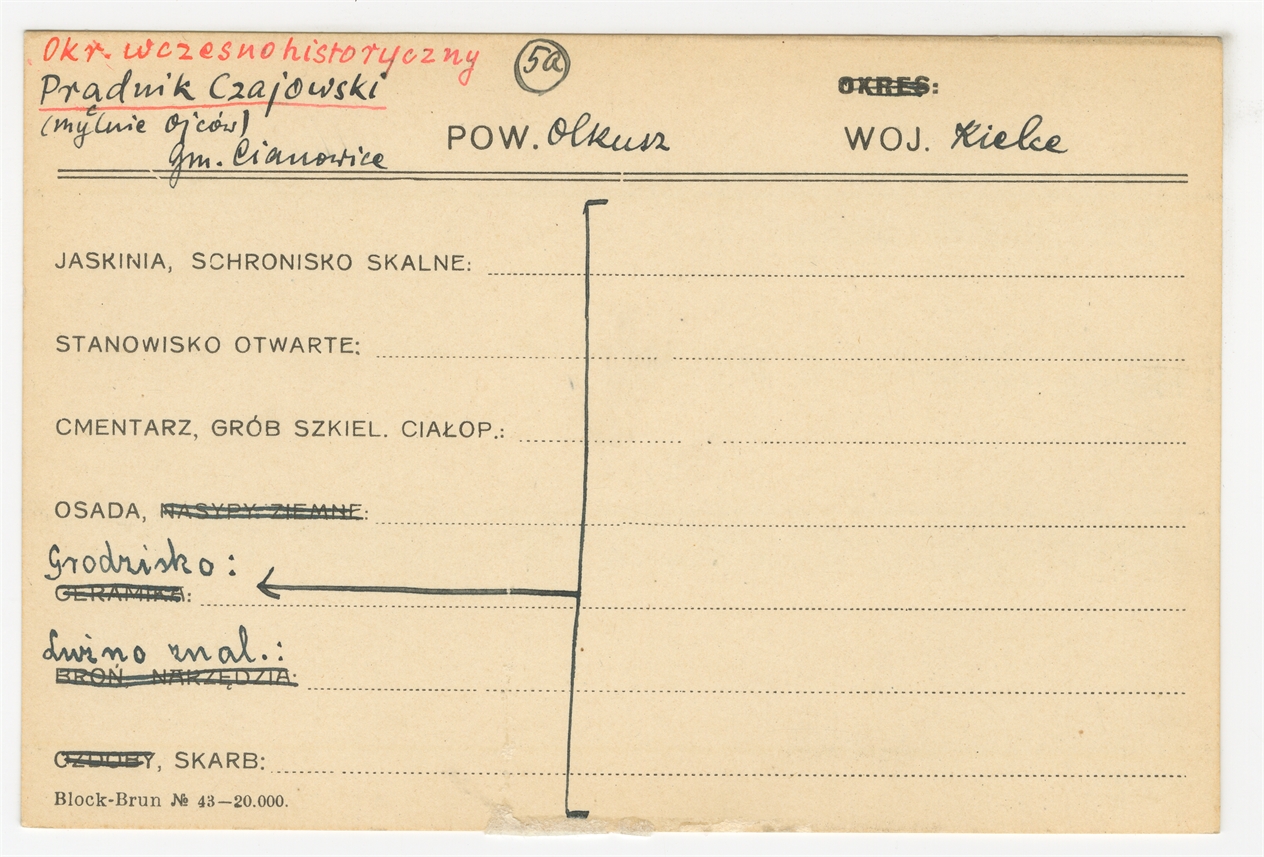 Okr. wczesnohistoryczny
5a
Prądnik Czajowski
(mylnie Ojców)
gm. Cianowice
POW. Olkusz
OKRES:
WOJ. Kielce
JASKINIA, SCHRONISKO SKALNE:
STANOWISKO OTWARTE:
CMENTARZ, GRÓB SZKIEL. CIAŁOP.:
OSADA, NASYPY ZIEMNE:
Grodzisko:
CERAMIKA:
Luźno znal.:
BROŃ, NARZĘDZIA:
OZDOBY, SKARB:
Block-Brun № 43—20.000.